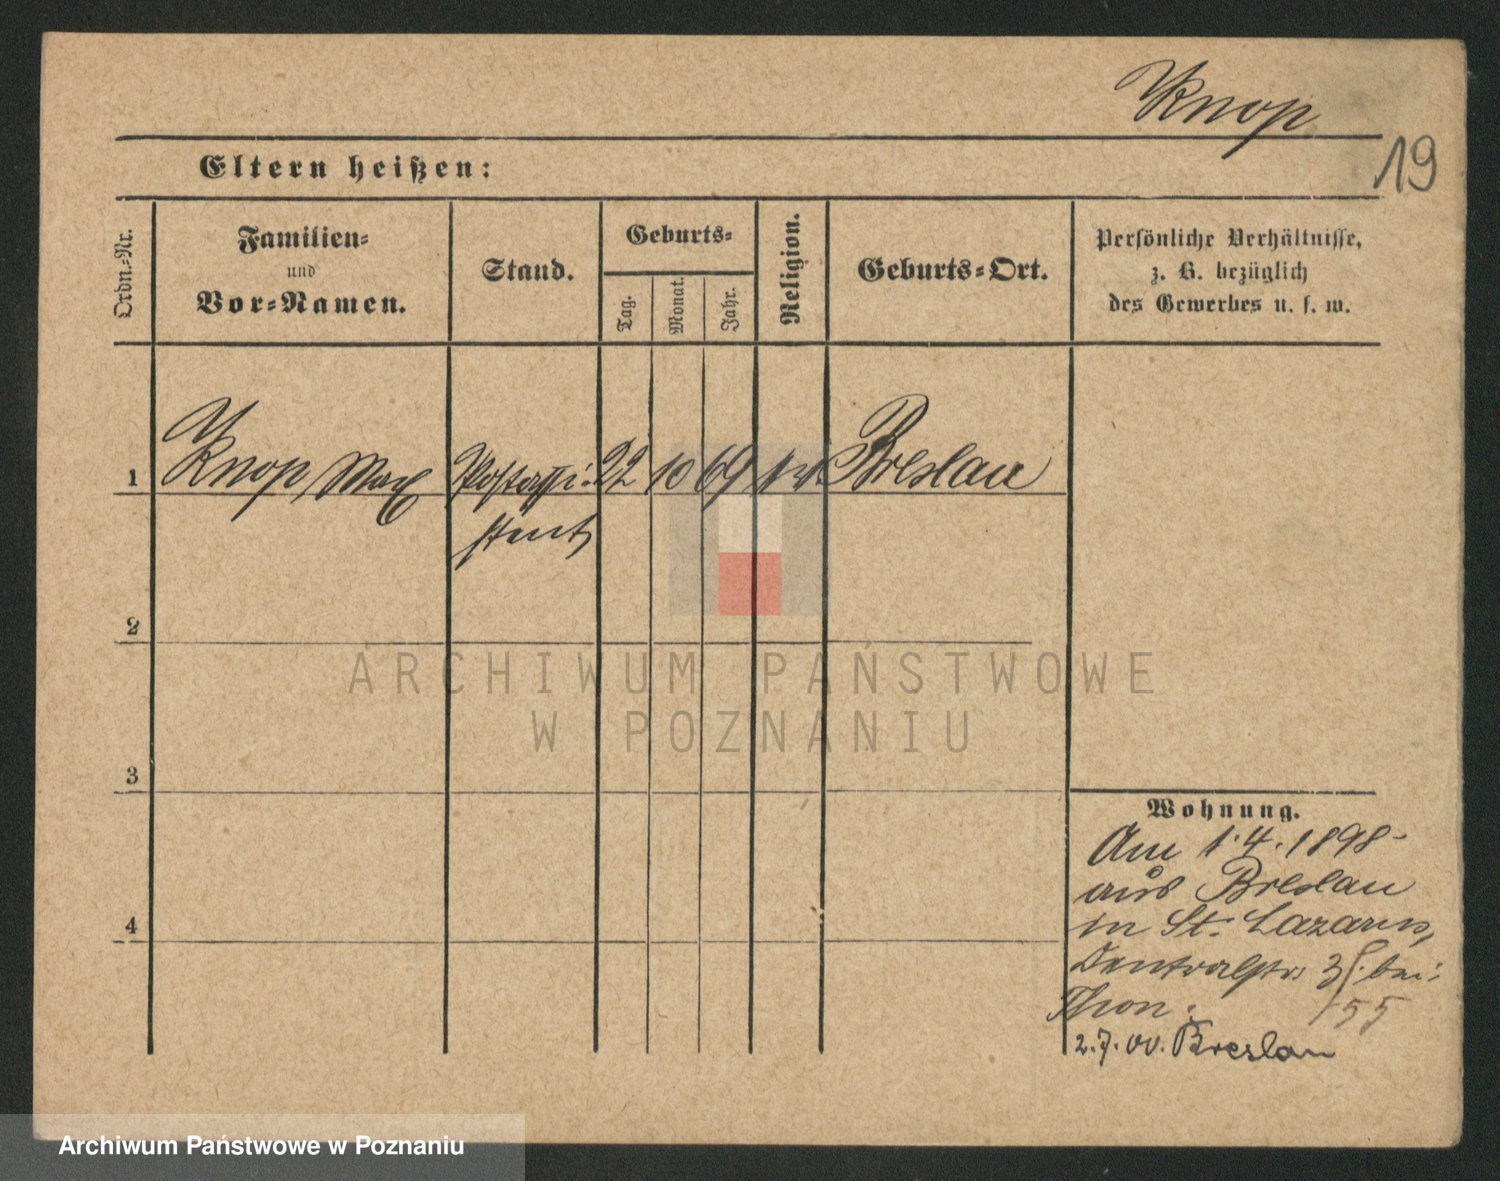 Knop
19
Eltern heißen:
Ordn.-Nr.
Familien-
und
Vor-Namen.
Stand.
Geburts-
Tag.
Monat.
Jahr.
Religion.
Geburts-Ort.
Persönliche Verhältnisse,
z. B. bezüglich
des Gewerbes u. s. w.
1 Knop, Max Postassi- 22 10 69 Breslau
stent
2
3
4
Wohnung.
Am 1.4.1898
aus Breslau
in St. Lazarus,
Centralstr. 3 bei
Thon.
155
2.7.00. Breslau
ARCHIWUM PAŃSTWOWE
W POZNANIU
Archiwum Państwowe w Poznaniu